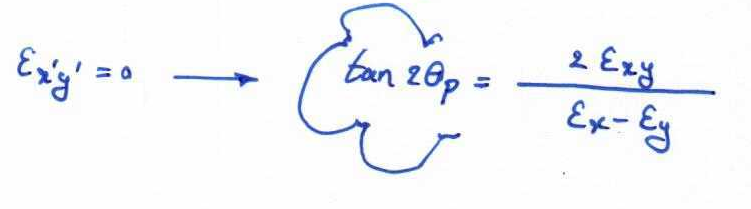 εx'y' = 0 ⟶ tan 2θp = 2 εxy / (εx - εy)